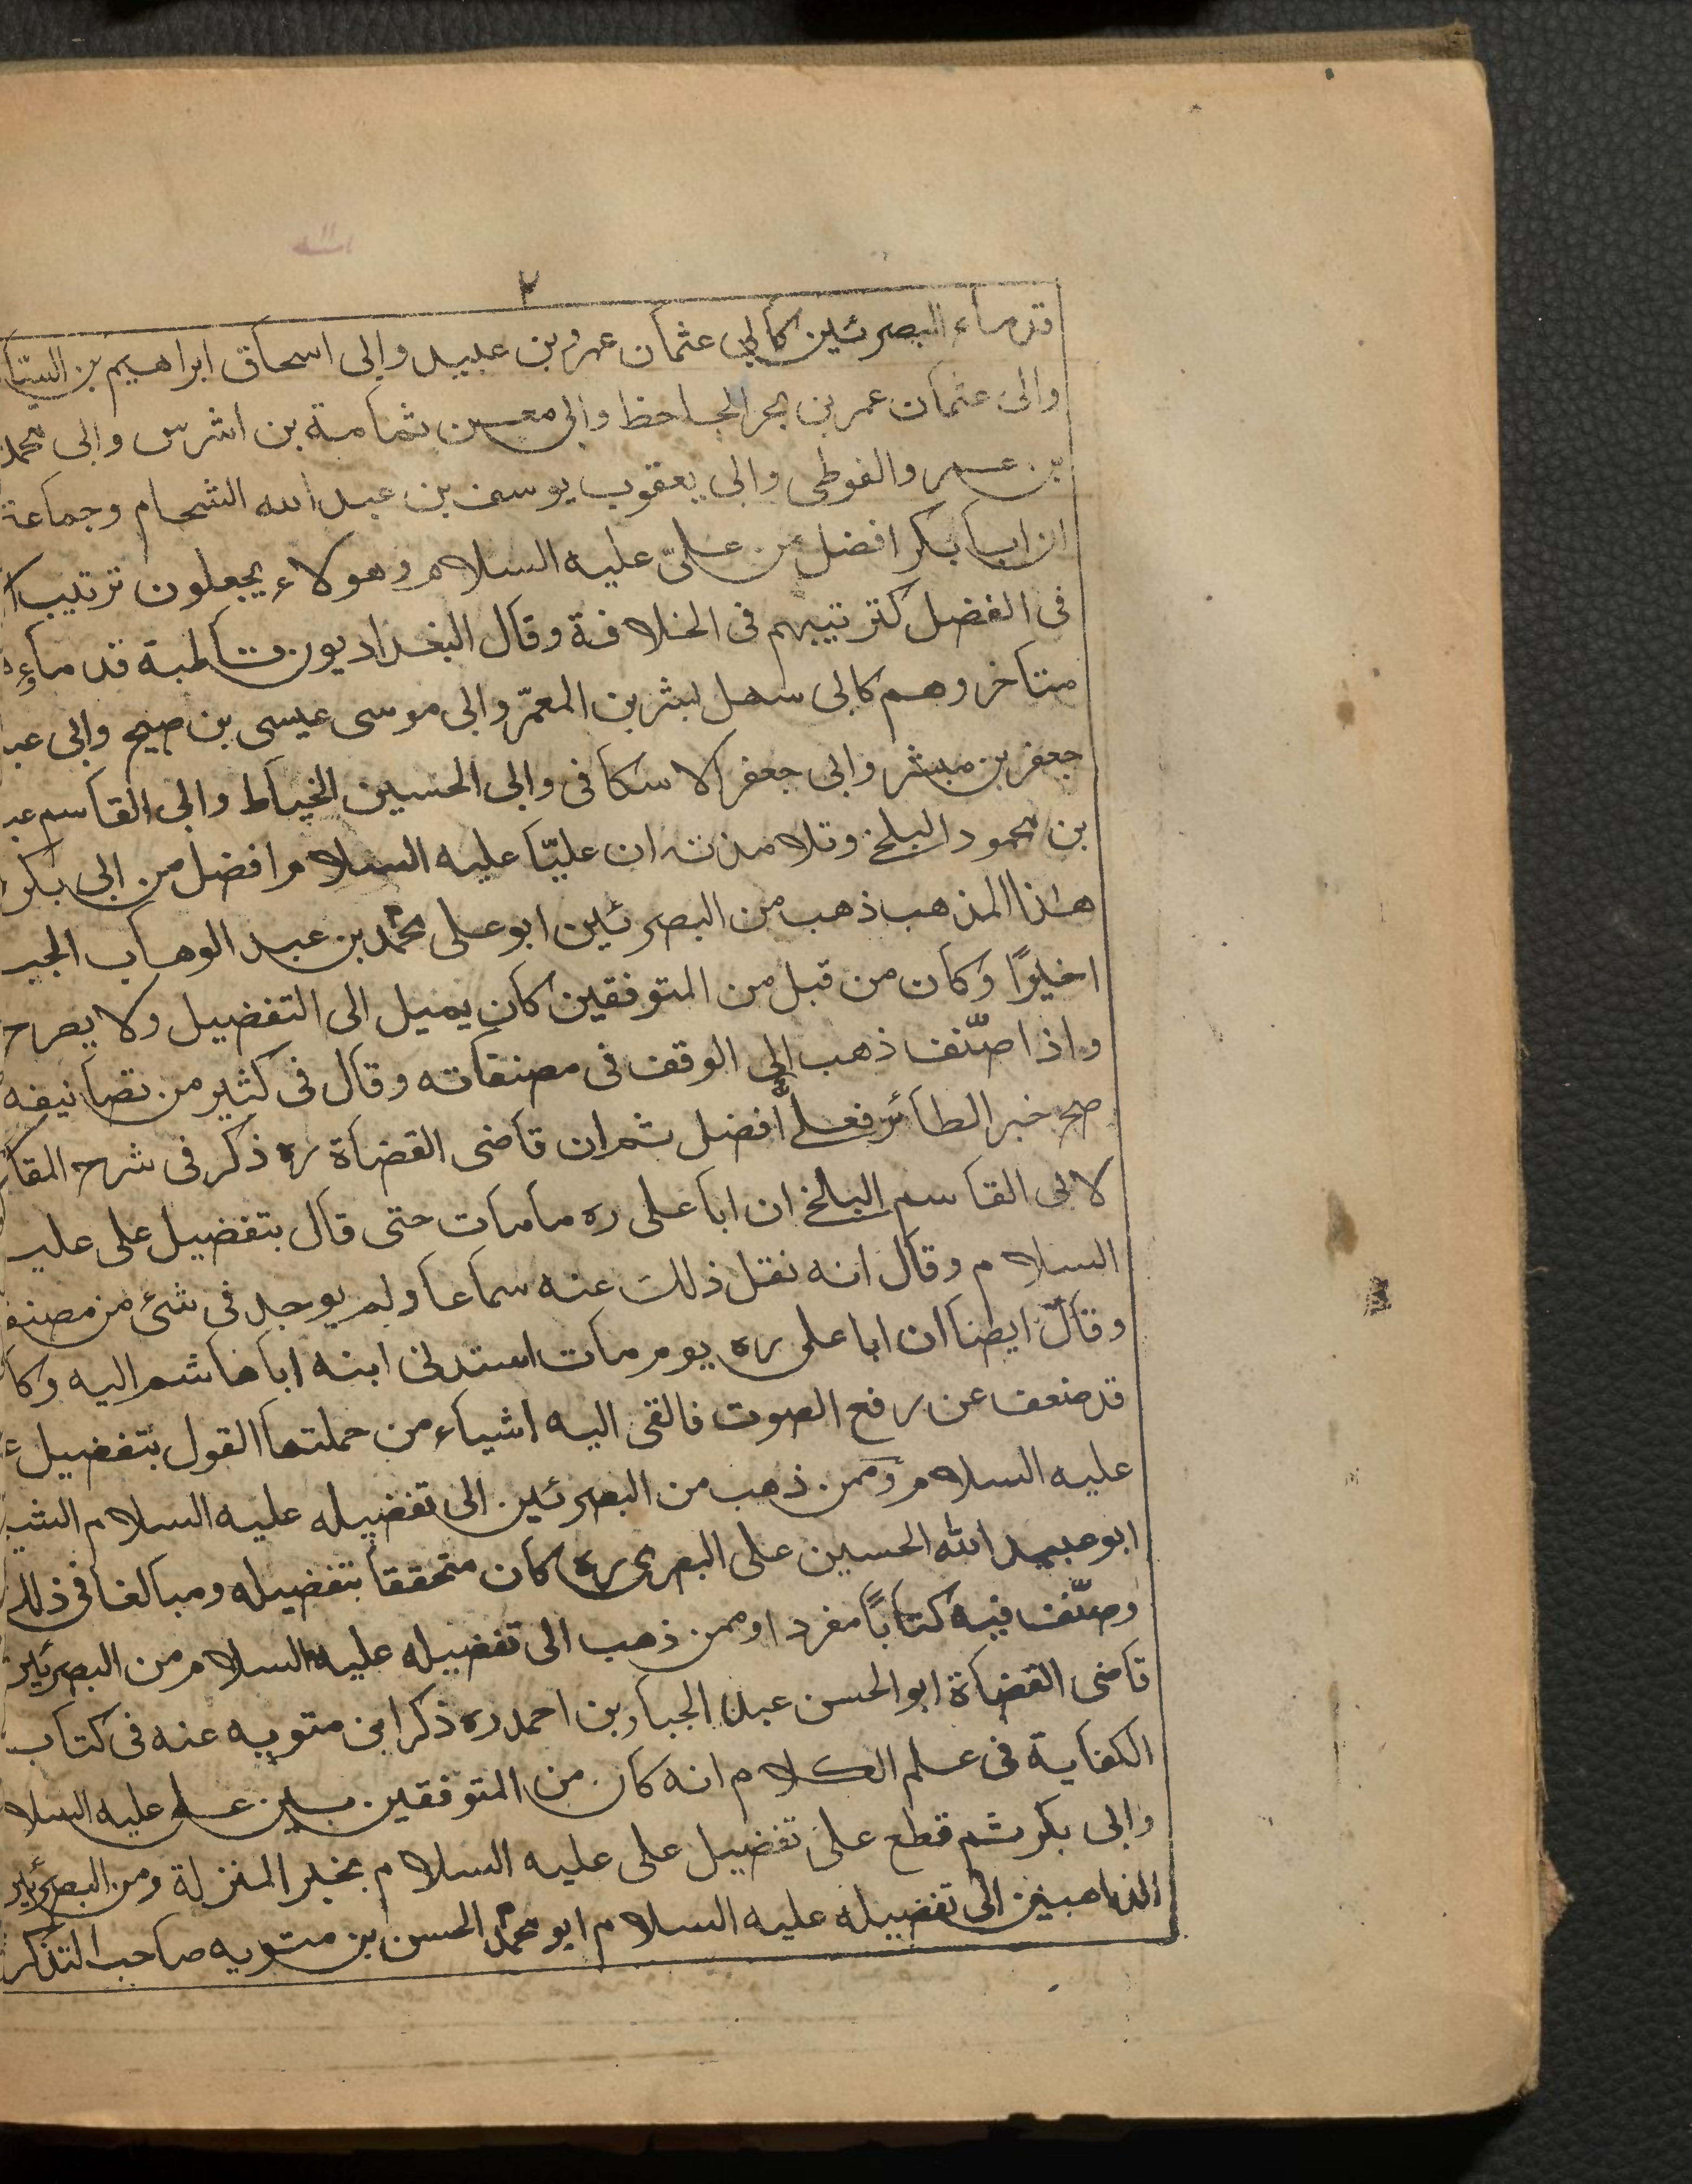 ٢
قدماء البصرئين كابي عثمان عمرو بن عبيد وابى اسحاق ابراهيم بن السيّا
وابى عثمان عمر بن بحر الجاحظ وابى معسن ثمامة بن اشرس وابى محمد
بن عمر والفوطى وابى يعقوب يوسف بن عبد الله الشحام وجماعة
ان ابا بكر افضل من علىّ عليه السلام وهولاء يجعلون ترتيب
فى الفضل كترتيبهم فى الخلافة وقال البغداديون قاطبة قدماؤه
متاخروهم كابى سهل لبشر بن المعمّر وابى موسى عيسى بن صبيح وابى عبد
جعفر بن مبشر وابى جعفر الاسكافى وابى الحسين الخياط وابى القاسم عبد
بن محمود البلخى وتلامذته ان عليّا عليه السلام افضل من ابى بكر
هذا المذهب ذهب من البصرئين ابو على محمّد بن عبد الوهاب الجب
اخيرًا وكان من قبل من المتوفقين كان يميل الى التفضيل ولا يصرح
واذا صنّف ذهب الى الوقف فى مصنفاته وقال فى كثير من تصانيفه
صح خبر الطائر فعلىٌّ افضل ثم ان قاضى القضاة ره ذكر فى شرح المقا
لابى القاسم البلخى ان ابا على ره مامات حتى قال بتفضيل على عليه
السلام وقال انه نقل ذلك عنه سماعا ولم يوجد فى شئ من مصنف
وقال ايضا ان ابا على ره يوم مات استدنى ابنه ابا هاشم اليه وكا
قد ضعف عن رفع الصوت فالقى اليه اشياء من جملتها القول بتفضيل ع
عليه السلام وممن ذهب من البصرئين الى تفضيله عليه السلام الشي
ابو عبيد الله الحسين على البصرى ره كان متحققا بتفضيله ومبالغا فى ذلك
وصنّف فيه كتابًا مفردا وممن ذهب الى تفضيله عليه السلام من البصرئين
قاضى القضاة ابو الحسن عبد الجبار بن احمد ره ذكر ابن متويه عنه فى كتاب
الكفاية فى علم الكلام انه كان من المتوفقين بين على عليه السلا
وابى بكر ثم قطع على تفضيل على عليه السلام بخبر المنزلة ومن البصرئين
الذاهبين الى تفضيله عليه السلام ابو محمّد الحسن بن متويه صاحب التذكر